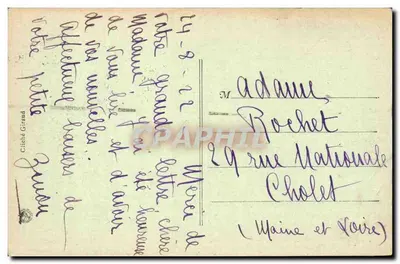 24-8-22 Merci de
votre grande lettre chère
Madame, j'ai été heureuse
de vous lire et d'avoir
de vos nouvelles.
Affectueux baisers de
votre petite
Cliché Giraud
Madame
Rochet
29 rue Nationale
Cholet
(Maine et Loire)
CPAPHIL